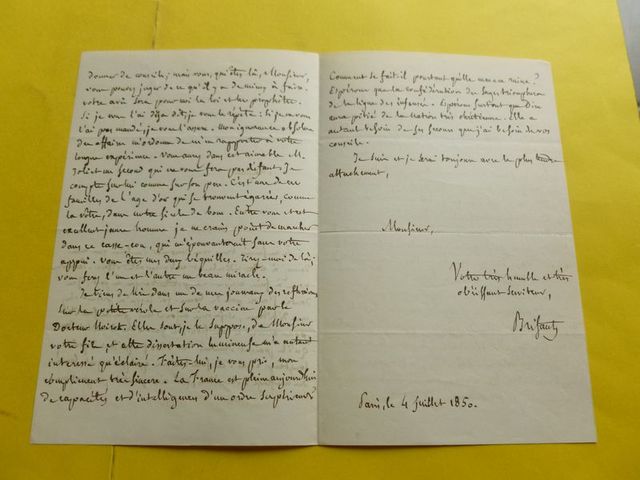 donner de conseils; mais vous, qui êtes là, Monsieur,
vous pouvez juger de ce qu'il y a de mieux à faire.
votre avis sera pour moi la loi et les prophètes.
Si je vous l'ai déjà dit, je vous le répète: si je ne vous
l'ai pas mandé, je vous l'assure. mon ignorance absolue
des affaires m'ordonne de m'en rapporter à votre
longue expérience. Vous aurez dans cet aimable M.
un second qui ne vous fera pas défaut. Je
compte sur lui comme sur son père. C'est une de ces
familles de l'âge d'or qui se trouvent égarées, comme
la vôtre, dans notre siècle de boue. Entre vous et cet
excellent jeune homme je ne crains point de marcher
dans ce casse-cou, qui m'épouvanterait sans votre
appui. Vous êtes mes deux béquilles. Tirez-moi de là;
vous ferez l'un et l'autre un beau miracle.
Je viens de lire dans un de mes journaux des réflexions
sur la petite vérole et sur la vaccine par le
Docteur. Elles sont, je le suppose, de Monsieur
votre fils, et cette dissertation lumineuse m'a autant
intéressé qu'éclairé. Faites-lui, je vous prie, mon
compliment très sincère. La France est pleine aujourd'hui
de capacités et d'intelligences d'un ordre supérieur
Comment se fait-il pourtant qu'elle menace ruine?
Espérons que la confédération des sages triomphera
de la ligue des insensés. Espérons surtout que Dieu
aura pitié de la nation très chrétienne. Elle a
autant besoin de son secours que j'ai besoin de vos
conseils.
Je suis et je serai toujours avec le plus tendre
attachement,
Monsieur,
Votre très humble et très
obéissant serviteur,
Brifaut
Paris, le 4 juillet 1850.